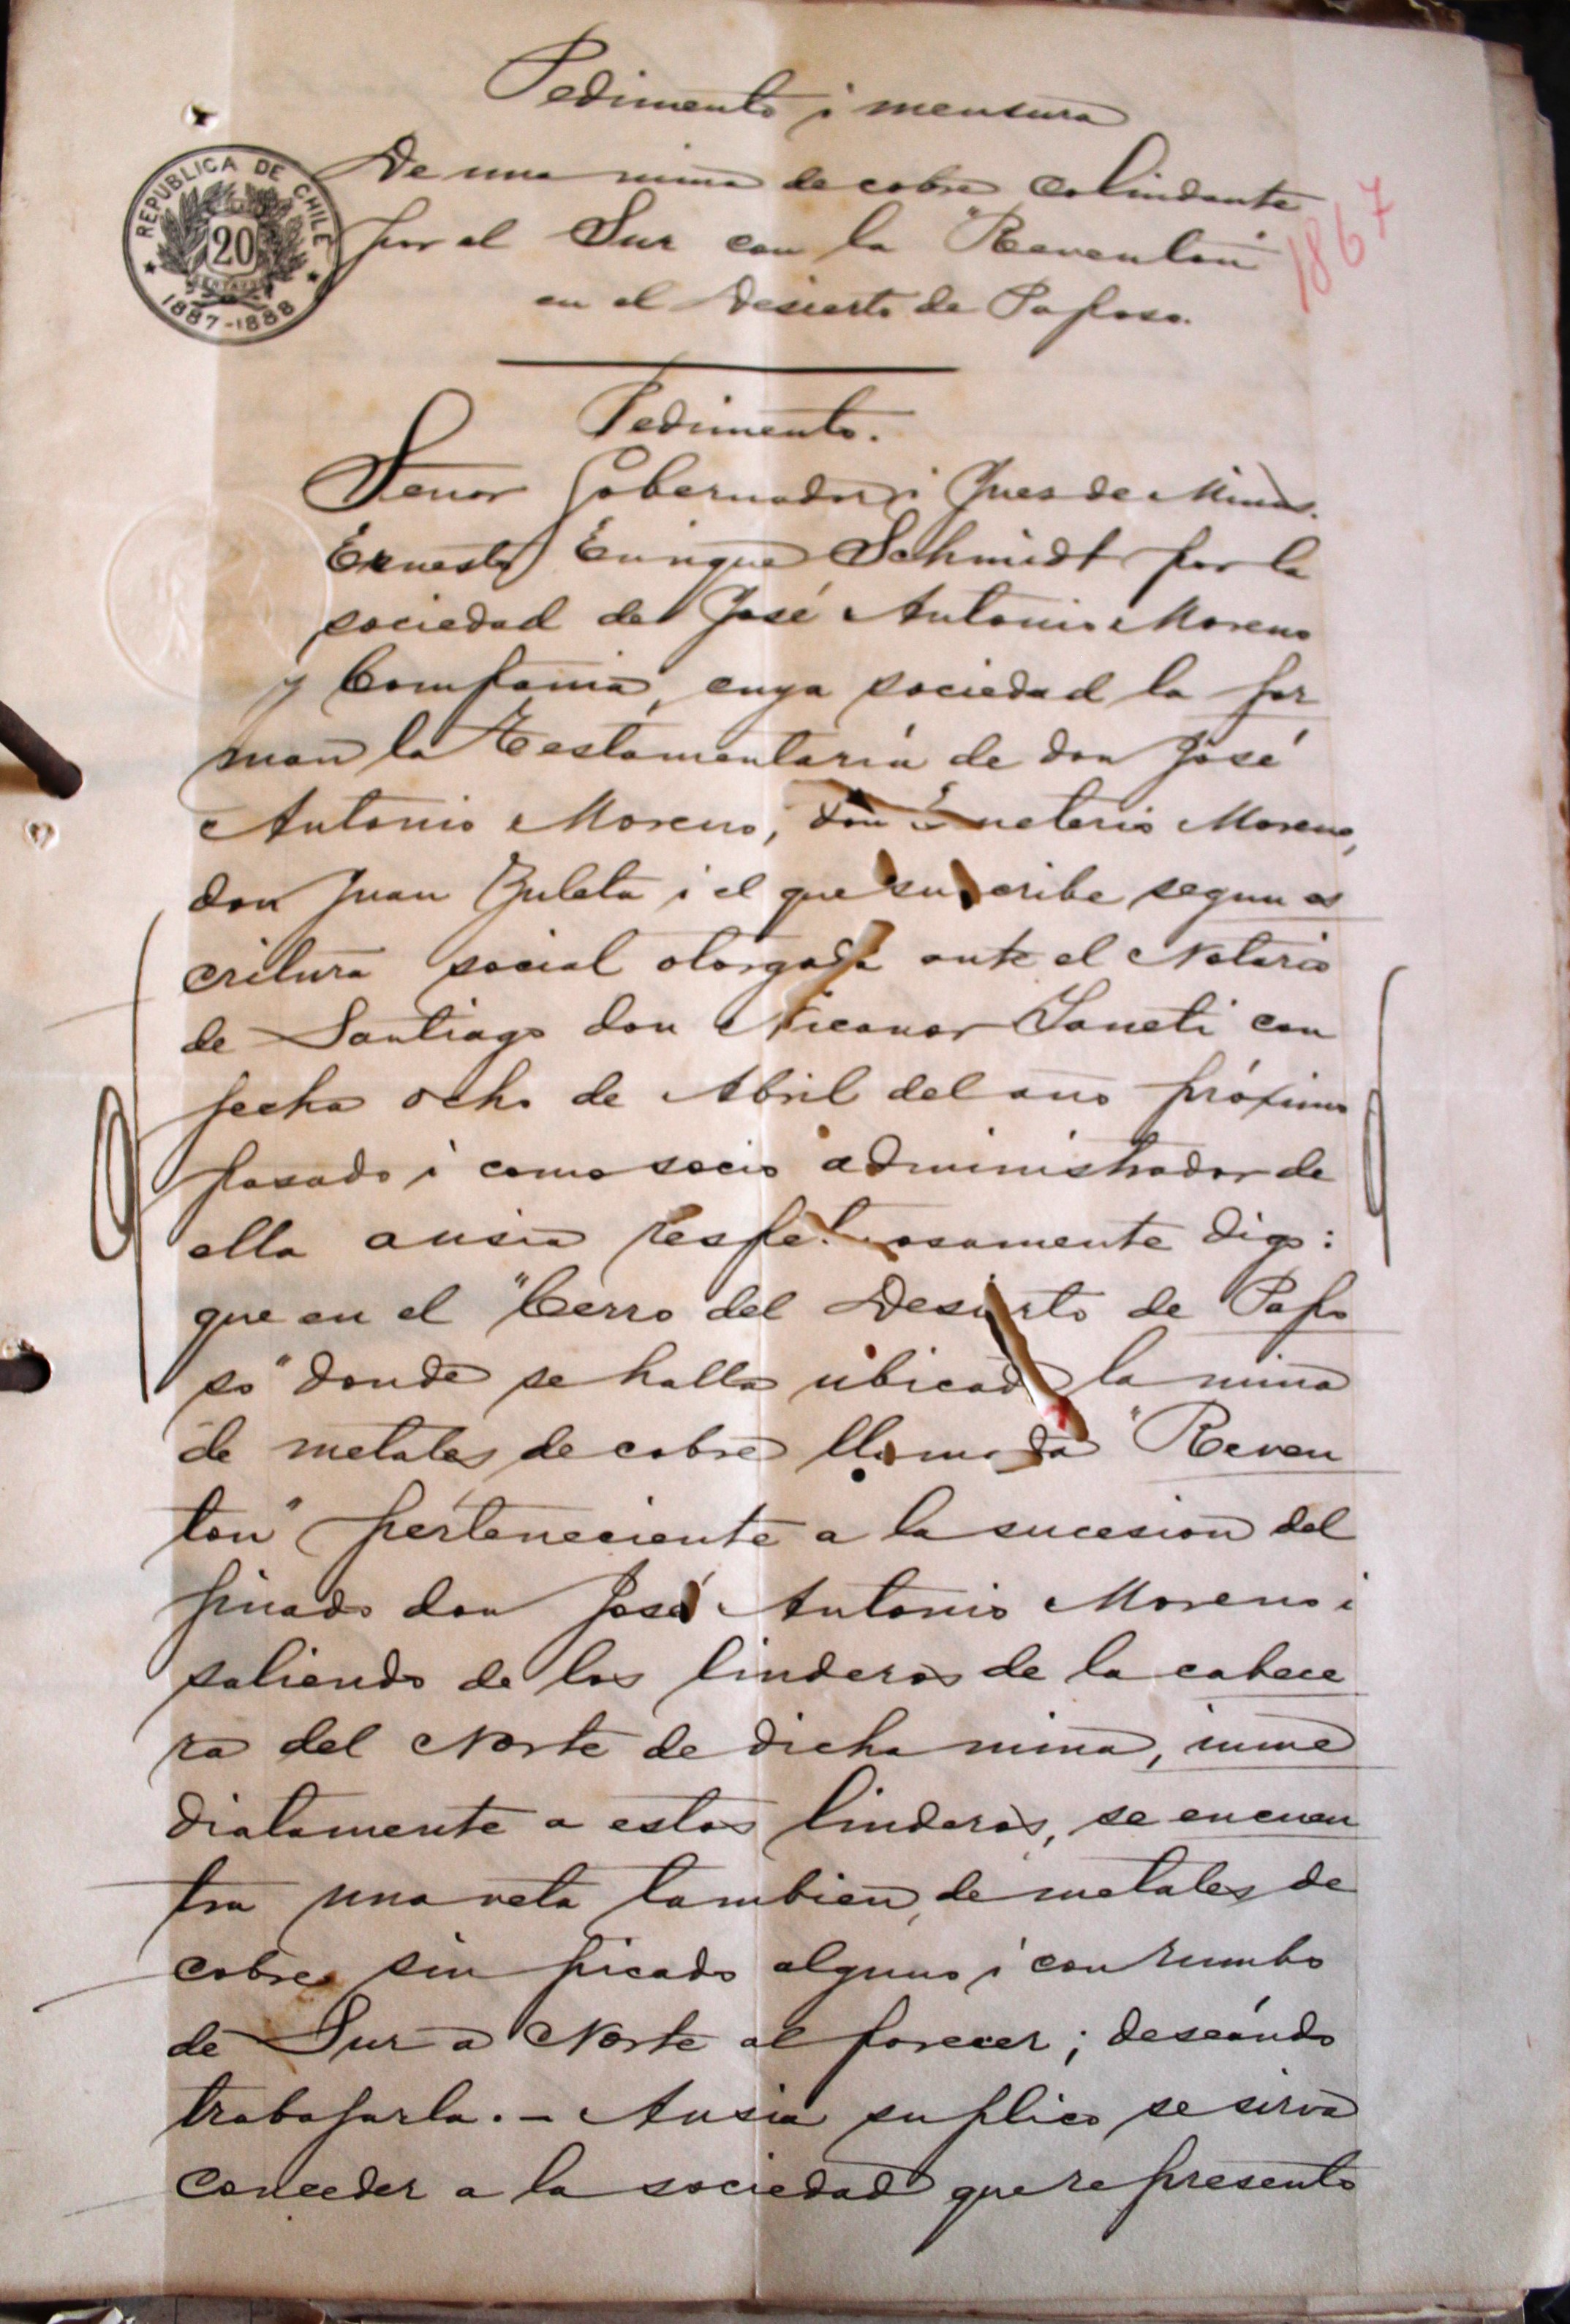 Pedimento i mensura
De una mina de cobre colindante
por el Sur con la "Reventon"
en el Desierto de Paposo.
1867
REPUBLICA DE CHILE
20
CENTAVOS
1887-1888
Pedimento.
Señor Gobernador i Jues de Minas.
Ernesto Enrique Schmidt por la
sociedad de José Antonio Moreno
y Compañia, cuya sociedad la for
man la Testamentaria de don José
Antonio Moreno, don Emeterio Moreno,
don Juan Zuleta i el que suscribe segun es
critura social otorgada ante el Notario
de Santiago don Nicanor Yaneti con
fecha ocho de Abril del año próximo
pasado i como socio administrador de
ella a usia respetuosamente digo:
que en el "Cerro del Desierto de Papo
so" donde se halla ubicada la mina
de metales de cobre llamada "Reven
ton" perteneciente a la sucesion del
finado don José Antonio Moreno i
saliendo de los linderos de la cabece
ra del Norte de dicha mina, inme
diatamente a estos linderos, se encuen
tra una veta tambien, de metales de
cobre sin picado alguno i con rumbo
de Sur a Norte al parecer; deseándo
trabajarla. - A usia suplico se sirva
conceder a la sociedad que represento